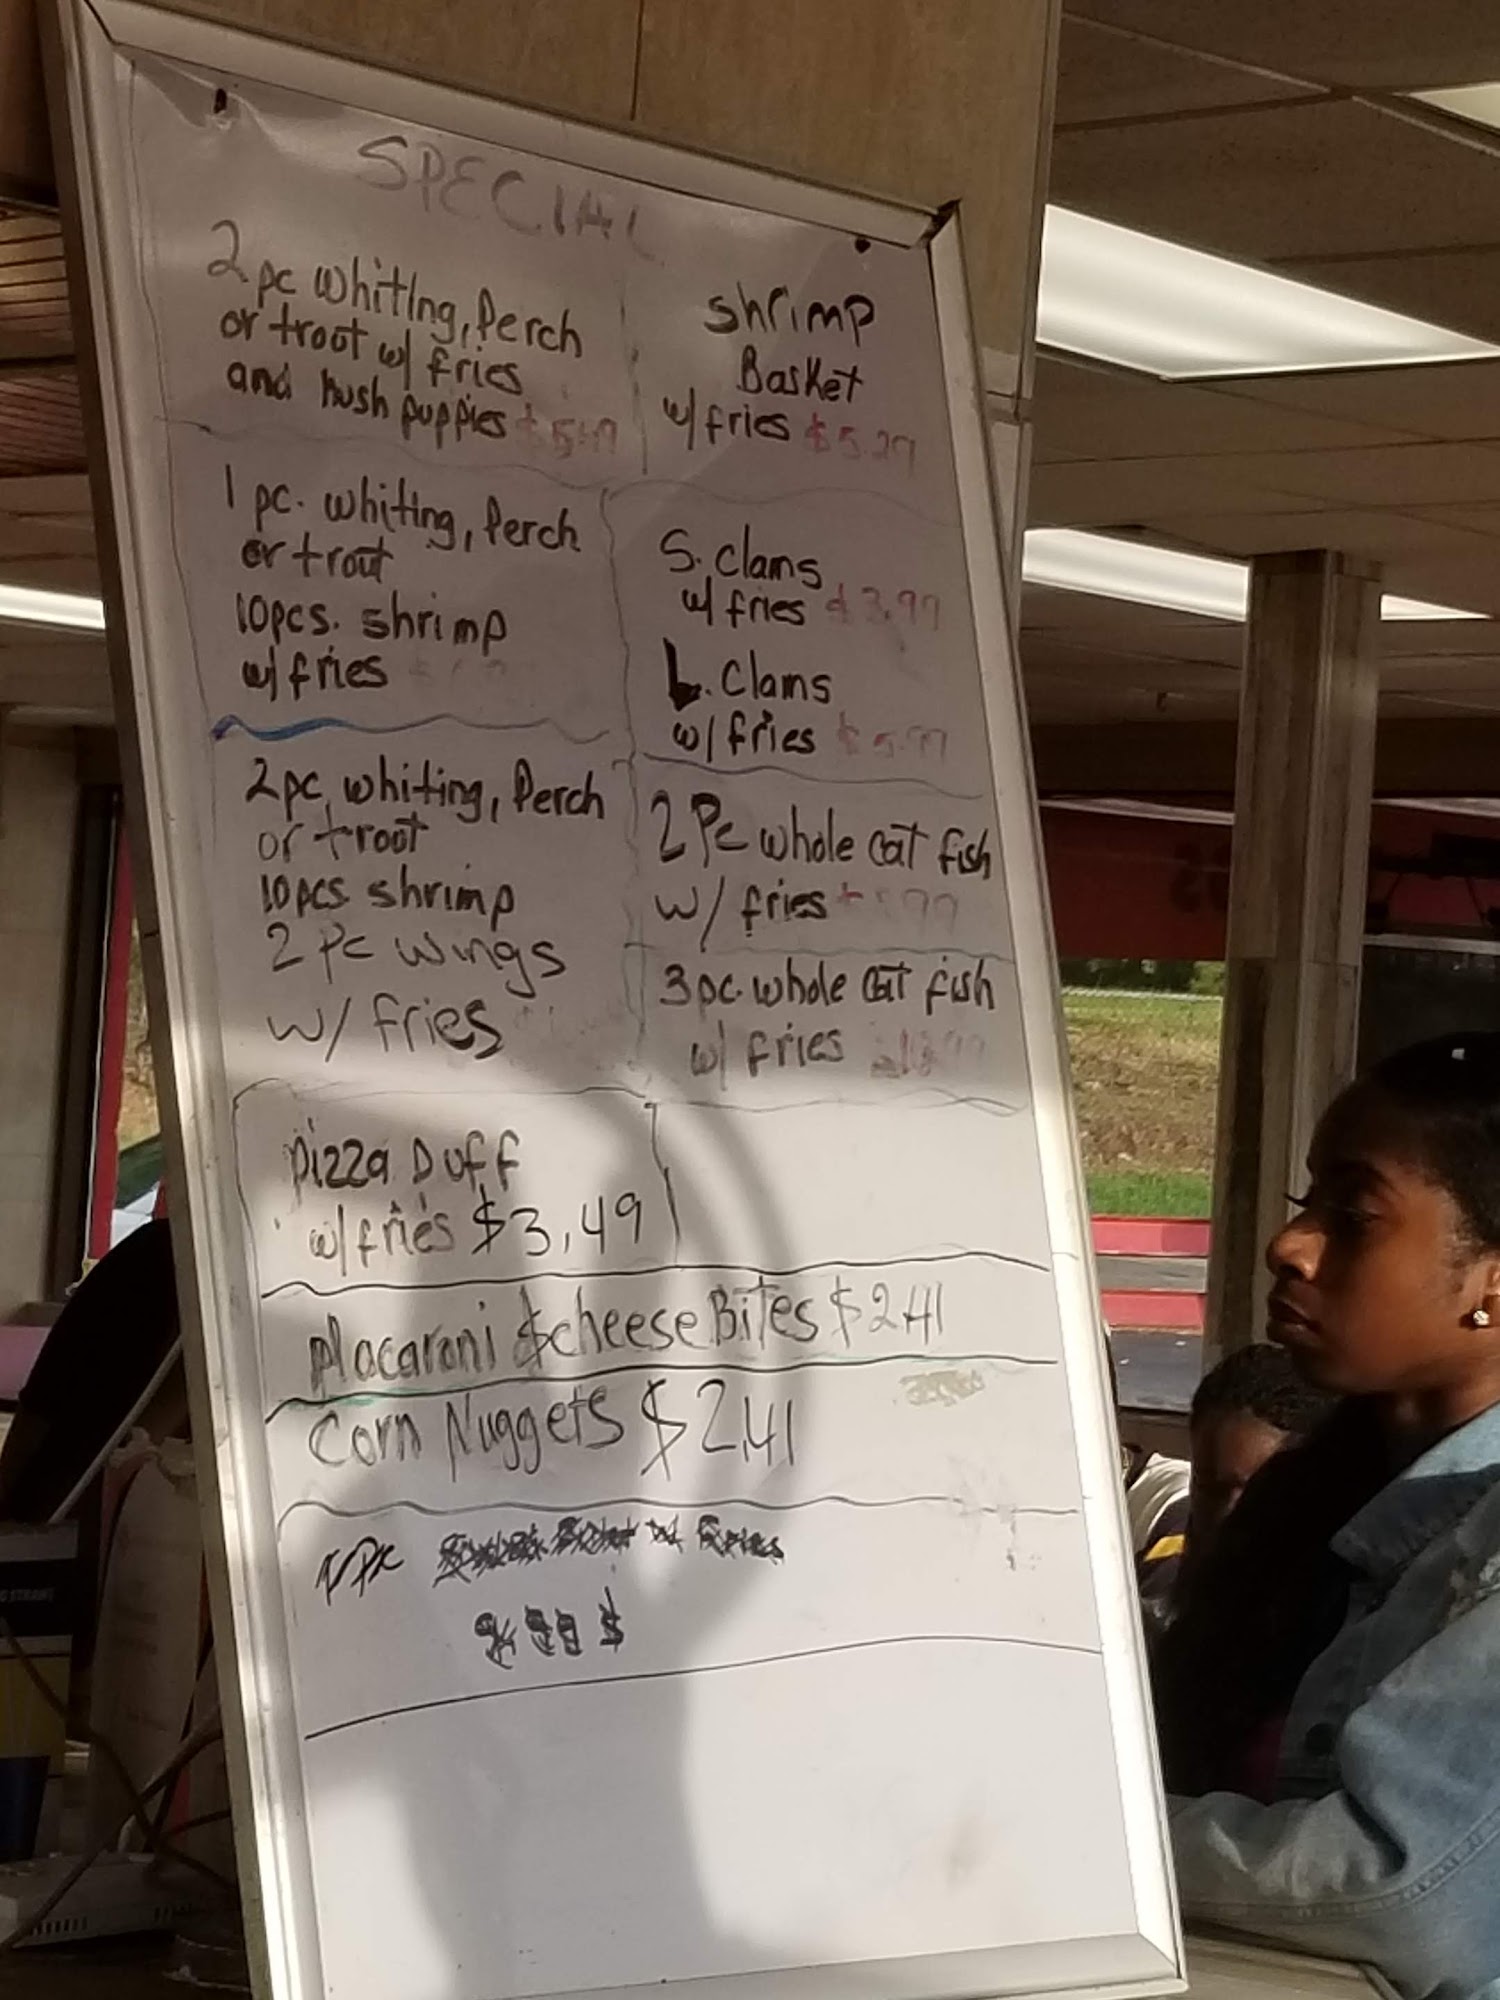 SPECIAL
2 pc whiting, Perch
or troot w/ fries
and hush puppies $5.49
1 pc. whiting, Perch
or trout
10pcs. shrimp
w/ fries
2 pc. whiting, Perch
or troot
10pcs shrimp
2 Pc wings
w/ fries
shrimp
Basket
w/ fries $5.29
S. Clams
w/ fries $3.99
L. Clams
w/ fries $5.99
2 Pc whole cat fish
w/ fries
3 pc. whole cat fish
w/ fries
pizza Puff
w/ fries $3.49
Macaroni & cheese Bites $2.41
Corn Nuggets $2.41